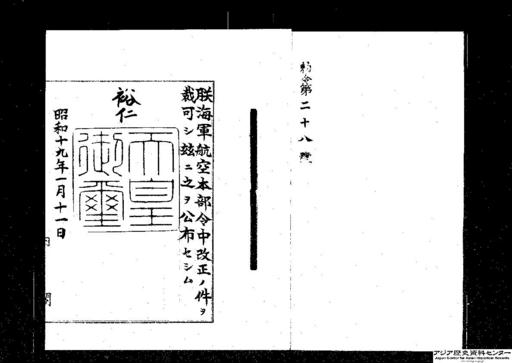 勅令第二十八號
朕海軍航空本部令中改正ノ件ヲ
裁可シ玆ニ之ヲ公布セシム
裕仁
天皇
御璽
昭和十九年一月十一日
内閣
アジア歴史資料センター
Japan Center for Asian Historical Records